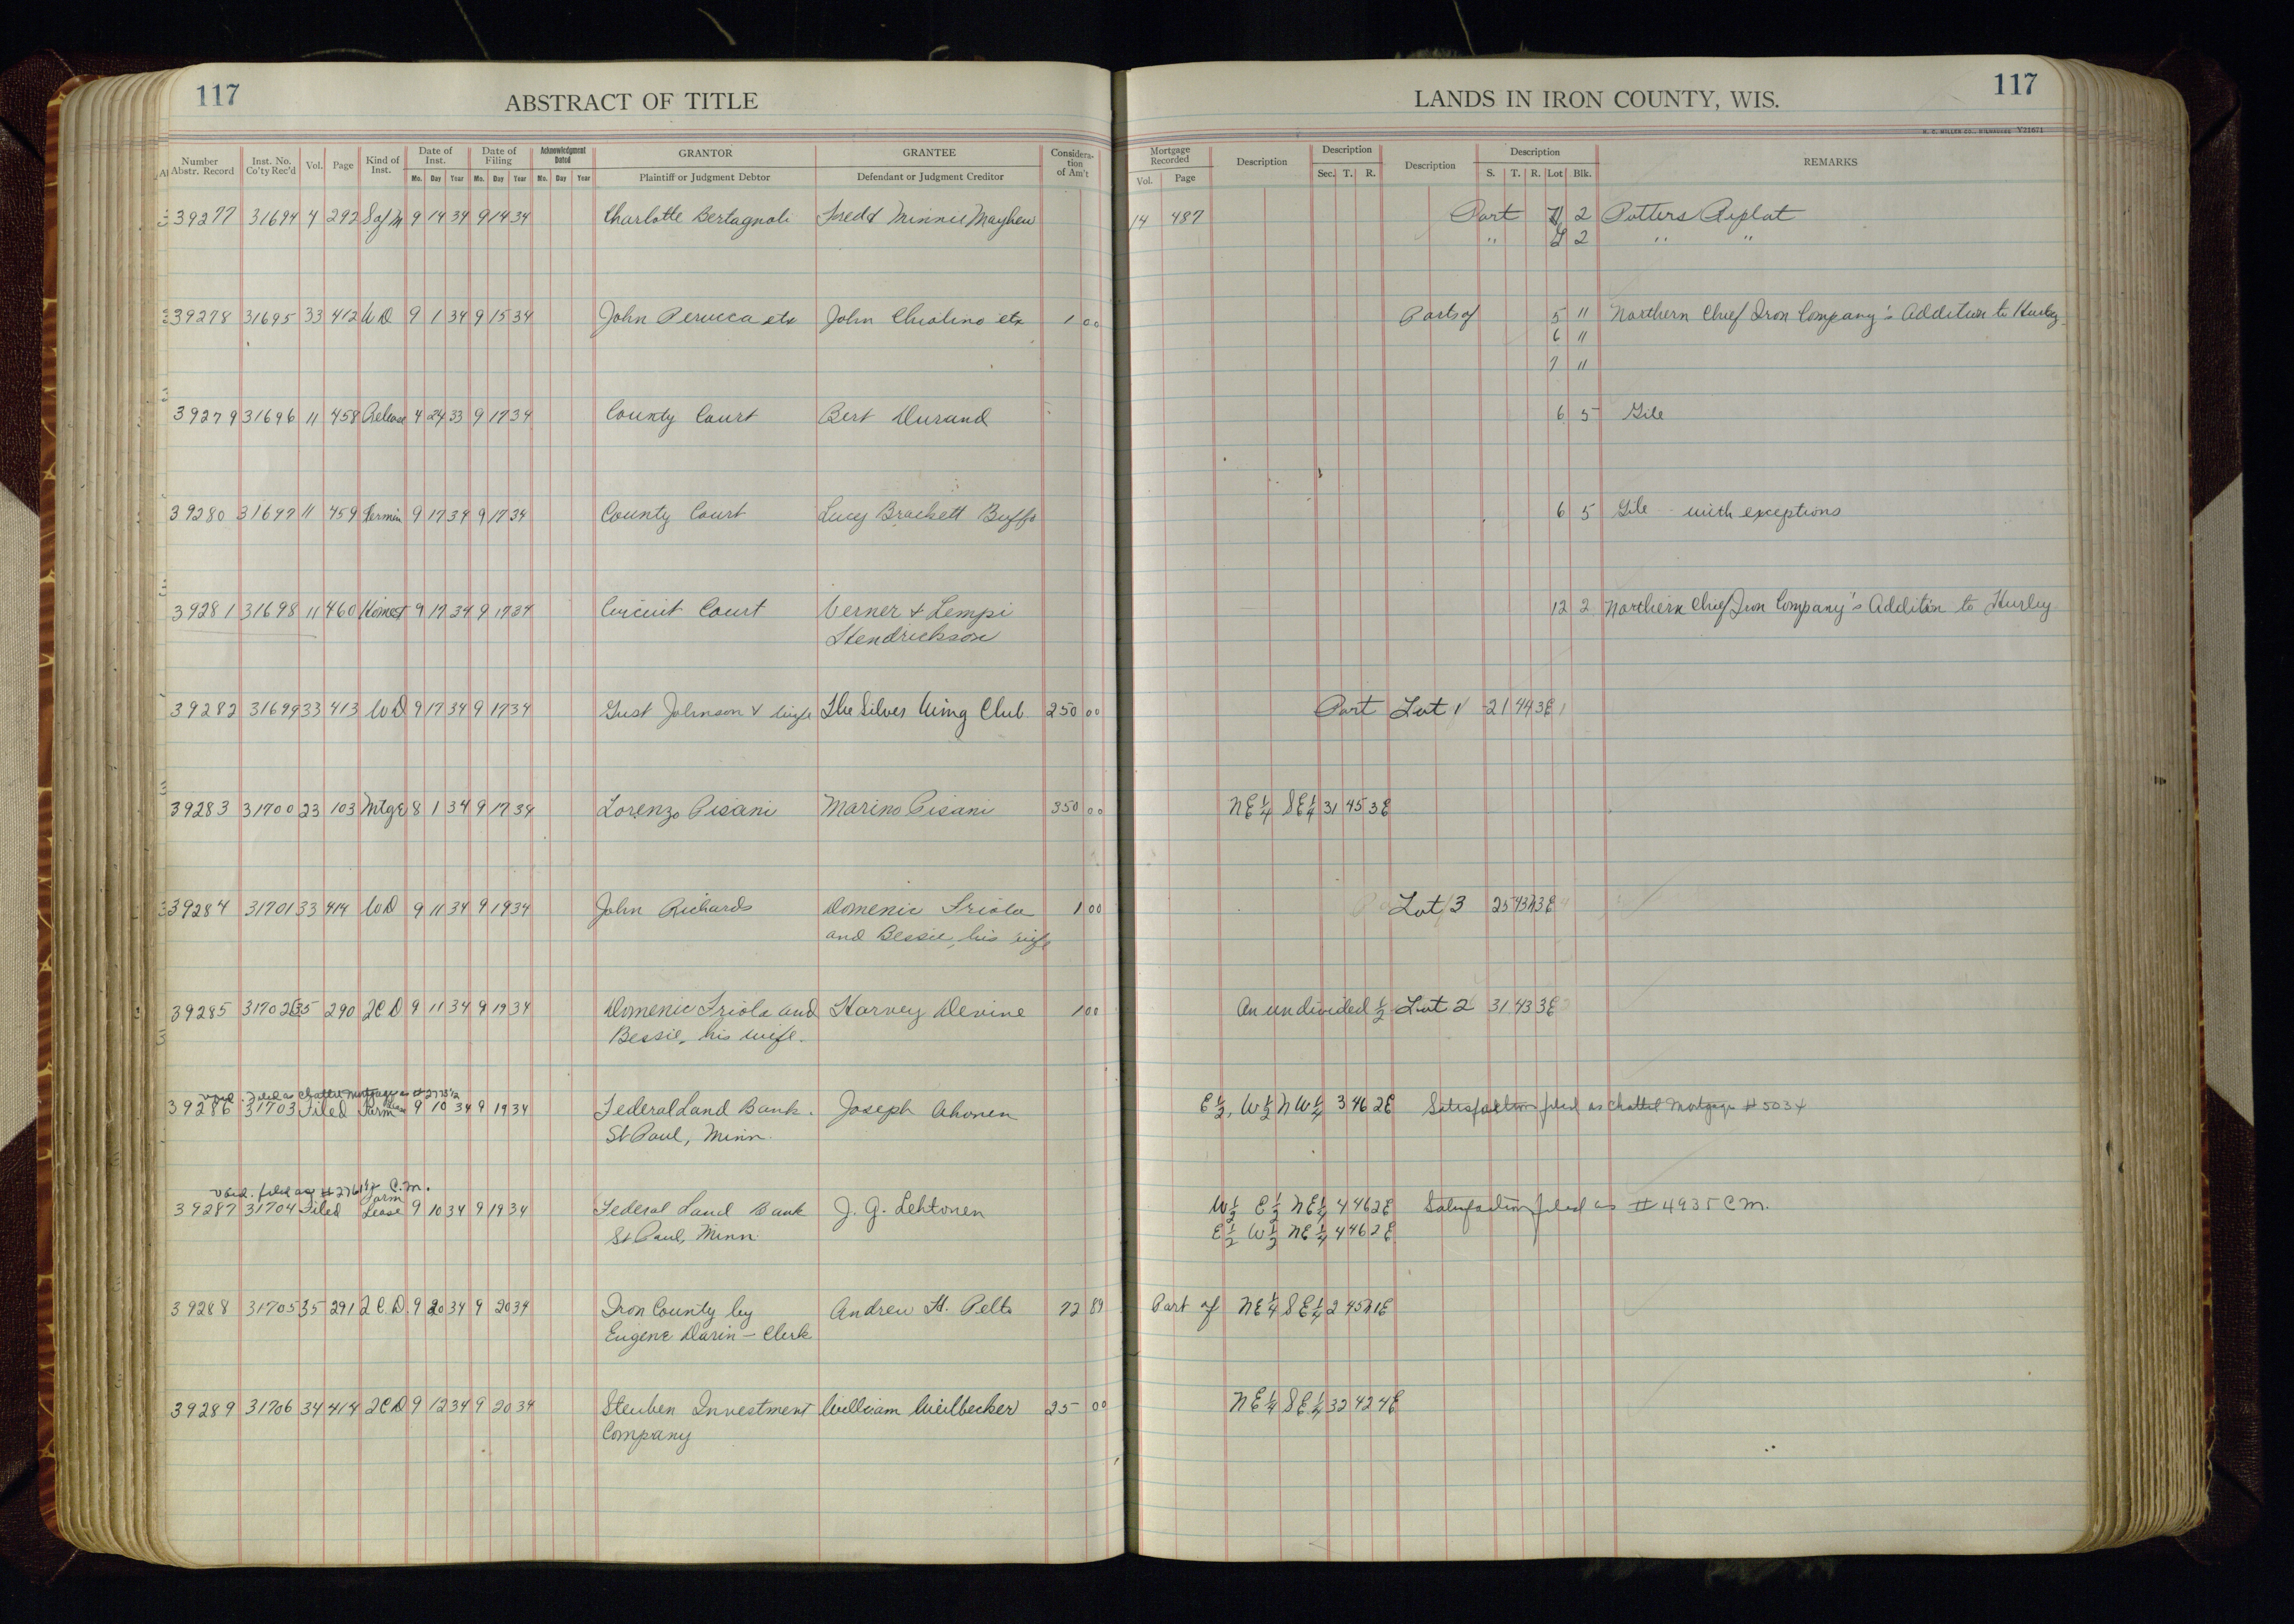 117
ABSTRACT OF TITLE
LANDS IN IRON COUNTY, WIS.
117
H. C. MILLER CO., MILWAUKEE Y21671
Number Abstr. Record Inst. No. Co'ty Rec'd Vol. Page Kind of Inst. Date of Inst. Mo. Day Year Date of Filing Mo. Day Year Acknowledgment Dated Mo. Day Year GRANTOR Plaintiff or Judgment Debtor GRANTEE Defendant or Judgment Creditor Consideration of Am't Mortgage Recorded Vol. Page Description Description Sec. T. R. Description Description S. T. R. Lot Blk. REMARKS
39277 31694 4 292 S of M 9 14 34 9 14 34 Charlotte Bertagnoli Fred & Minnie Mayhew 14 487 Part 2 Potters Replat
" 2 " "
39278 31695 33 412 WD 9 1 34 9 15 34 John Perucca etx John Chiolino etx 1 00 Parts of 5 11 Northern Chief Iron Company's Addition to Hurley
6 11
7 11
39279 31696 11 458 Release 4 24 33 9 17 34 County Court Bert Durand 6 5 Gile
39280 31697 11 459 Termin 9 17 34 9 17 34 County Court Lucy Brackett Buffo 6 5 Gile with exceptions
39281 31698 11 460 Homest 9 17 34 9 17 34 Circuit Court Verner & Lempi 12 2 Northern Chief Iron Company's Addition to Hurley
Hendrickson
39282 31699 33 413 WD 9 17 34 9 17 34 Gust Johnson & wife The Silver Wing Club 250 00 Part Lot 1 21 44 3E
39283 31700 23 103 Mtge 8 1 34 9 17 34 Lorenzo Pisani Marino Pisani 350 00 NE¼ SE¼ 31 45 3E
39284 31701 33 414 WD 9 11 34 9 19 34 John Richards Domenic Friola 1 00 Lot 3 25 43N 3E
and Bessie, his wife
39285 31702 35 290 2CD 9 11 34 9 19 34 Domenic Friola and Harvey Devine 1 00 An undivided ½ Lot 2 31 43 3E
Bessie, his wife.
void. Filed as Chattel Mortgage as
39286 31703 Filed Farm 9 10 34 9 19 34 Federal Land Bank. Joseph Ahonen E½, W½ NW¼ 3 46 2E Satisfaction filed as Chattel Mortgage # 5034
St Paul, Minn.
void. filed as C.M.
39287 31704 Filed Farm Lease 9 10 34 9 19 34 Federal Land Bank J. G. Lehtonen W½ E½ NE¼ 4 46 2E Satisfaction filed as # 4935 C M.
St Paul, Minn. E½ W½ NE¼ 4 46 2E
39288 31705 35 291 2C.D. 9 20 34 9 20 34 Iron County by Andrew H. Pelto 72 89 Part of NE¼ SE¼ 2 45N 1E
Eugene Darin - Clerk
39289 31706 34 414 2CD 9 12 34 9 20 34 Steuben Investment William Weilbecker 25 00 NE¼ SE¼ 32 42 4E
Company